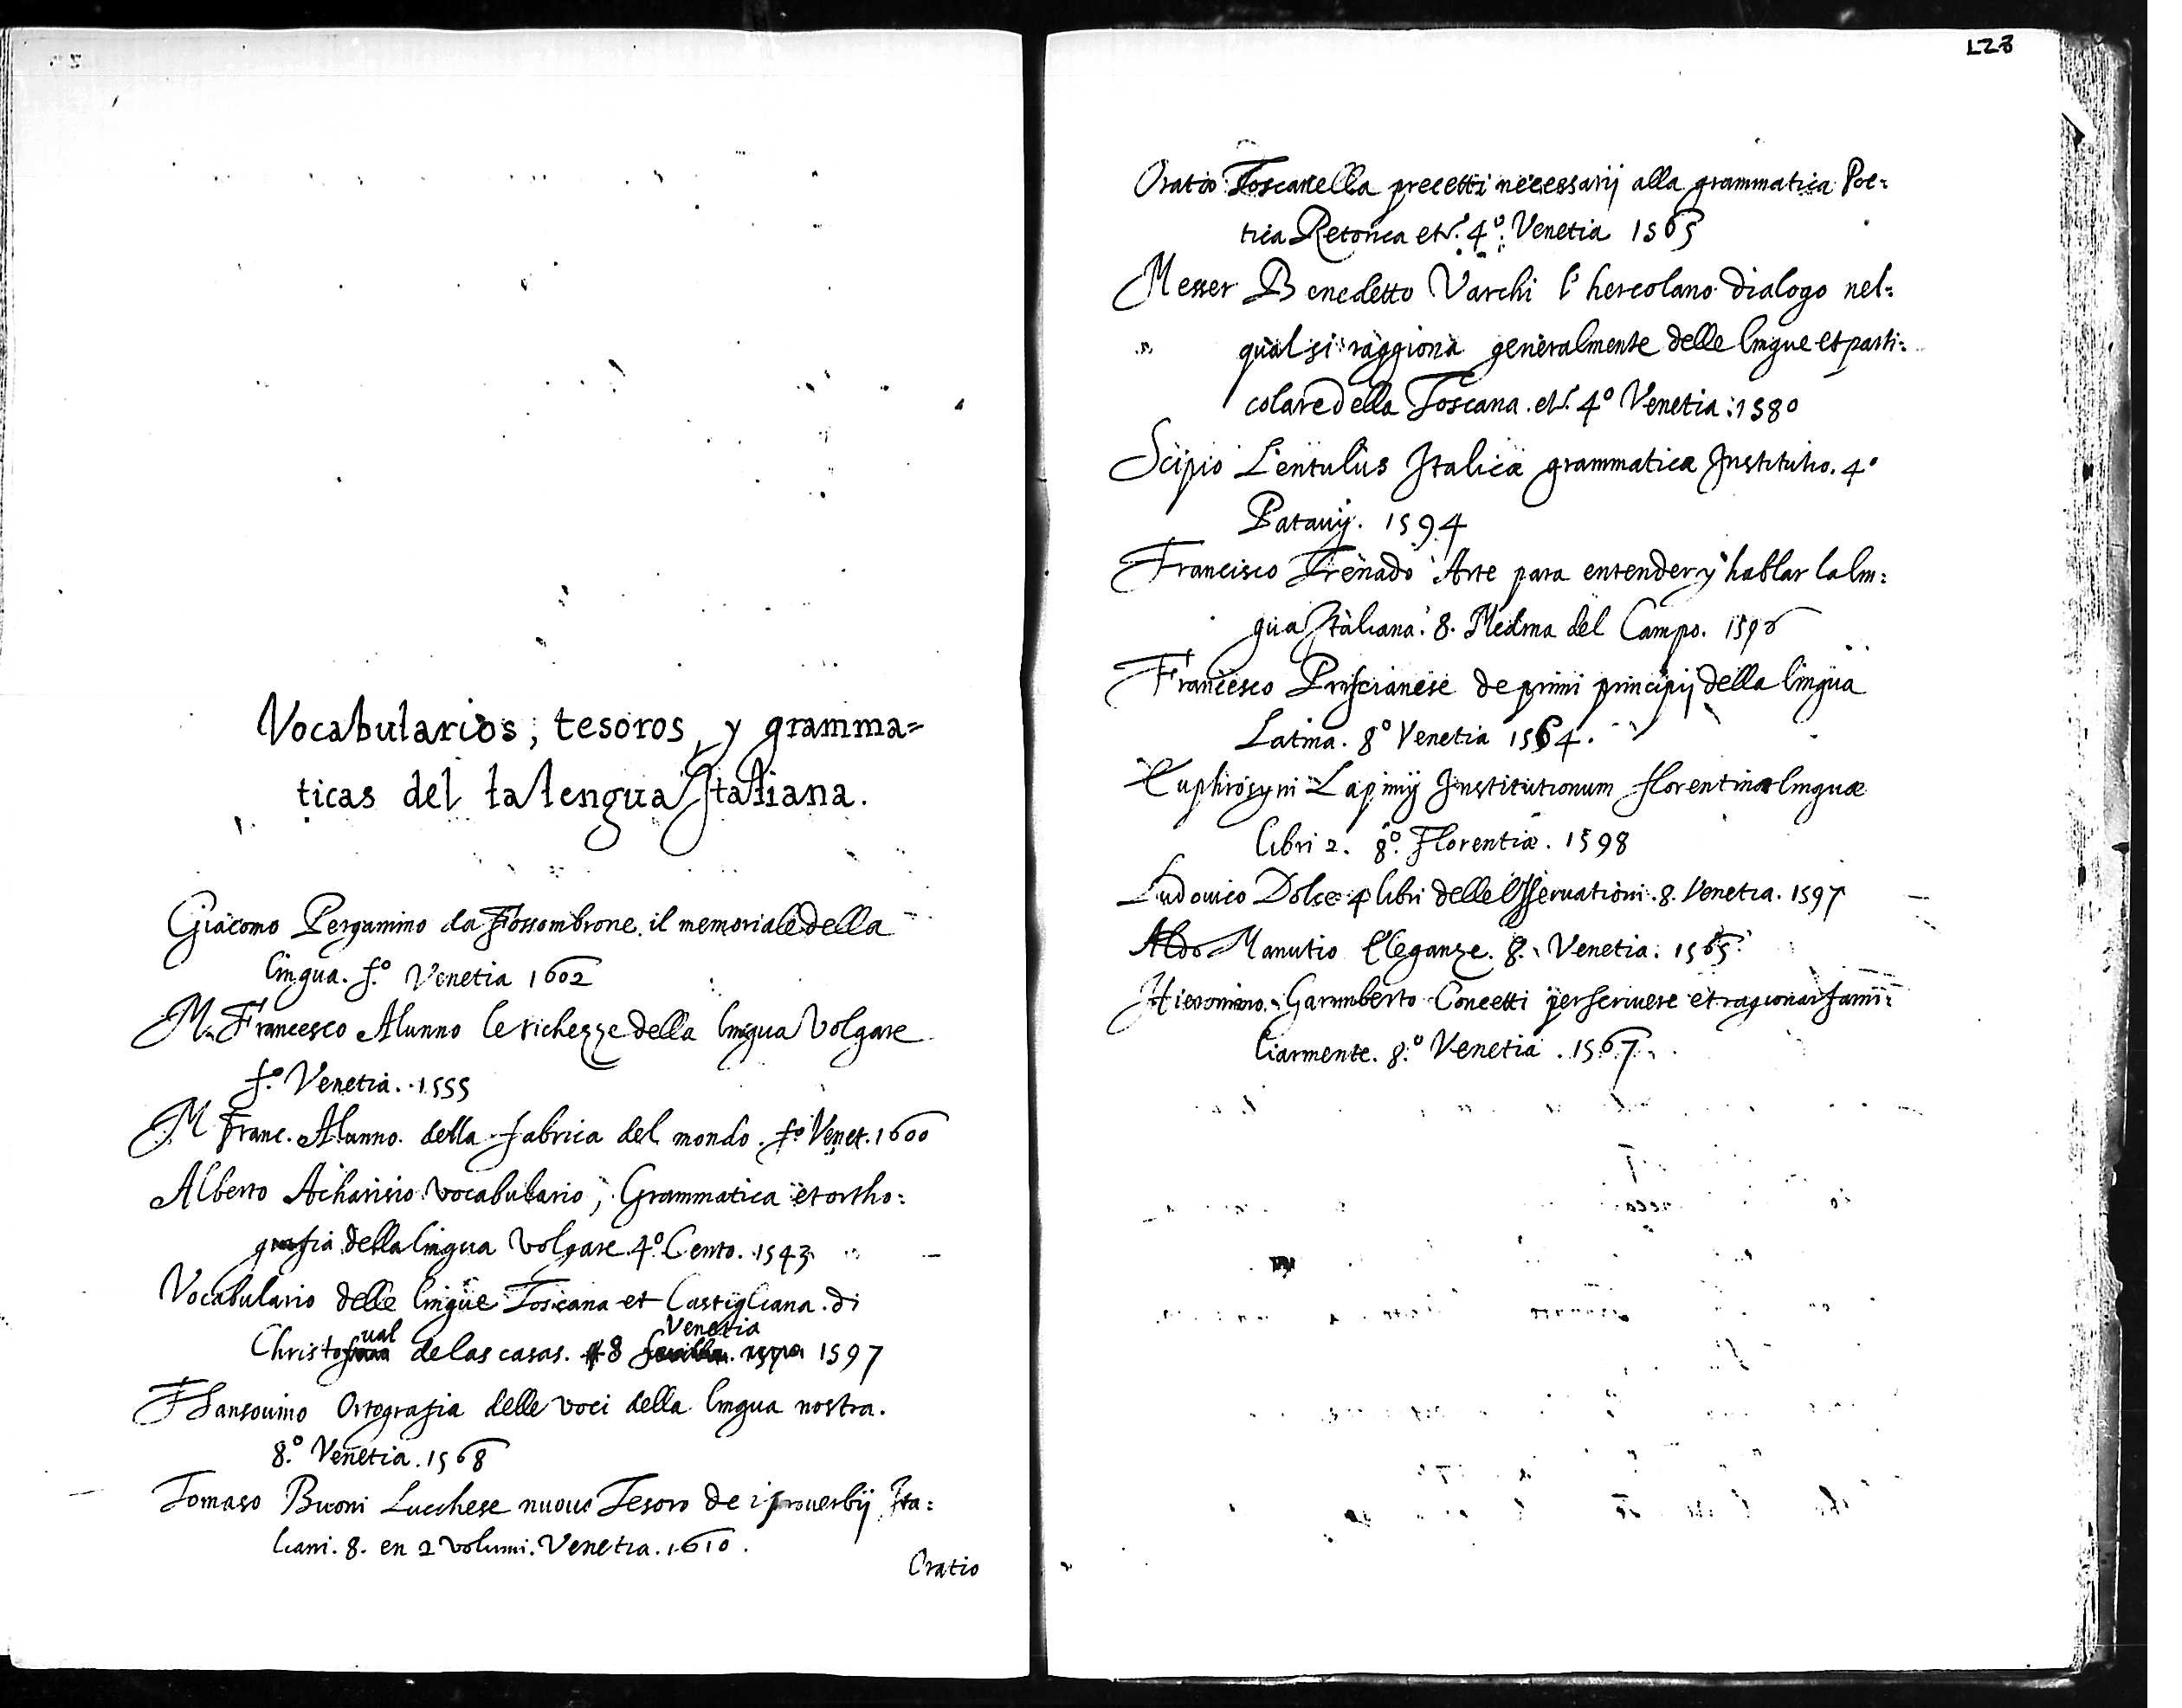 Vocabularios, tesoros, y gramma=
ticas del la lengua Italiana.
Giacomo Pergamino da Fossombrone. il memoriale della
lingua. f.º Venetia 1602
M. Francesco Alunno le richezze della lingua Volgare
f.º Venetia. 1555
M Franc. Alunno. della fabrica del mondo. f.º Venet. 1600
Alberto Acharisio vocabulario, Grammatica et ortho=
grafia della lingua volgare. 4.º Cento. 1543.
Vocabulario delle lingue Toscana et Castigliana. di
ual Venetia
Christo de las casas. 8 1597
F Sansouino Ortografia delle voci della lingua nostra.
8.º Venetia. 1568
Tomaso Buoni Lucchese nuouo Tesoro de i prouerbij Ita=
liani. 8. en 2 volumi. Venetia. 1610.
Oratio
227
Oratio Toscanella precetti necessarij alla grammatica Poe=
tica Retorica et. 4º. Venetia 1565
Messer Benedetto Varchi l'hercolano dialogo nel=
qual si raggiona generalmente delle lingue et parti=
colare della Toscana. et. 4º Venetia. 1580
Scipio Lentulus Italicæ grammaticæ Institutio. 4º
Patauij. 1594
Francisco Trenado Arte para entender y hablar la lin=
gua Italiana. 8. Medina del Campo. 1596
Francesco Priscianese de primi principij della lingua
Latina. 8º Venetia 1564.
Euphrosyni Lapinij Institutionum florentinæ linguæ
libri 2. 8º. Florentiæ. 1598
Ludouico Dolce 4 libri delle Osseruationi. 8. Venetia. 1597
Aldo Manutio Eleganze. 8. Venetia. 1565.
Hieronimo. Garimberto Concetti per scriuere et ragionar fami=
liarmente. 8.º Venetia. 1567.